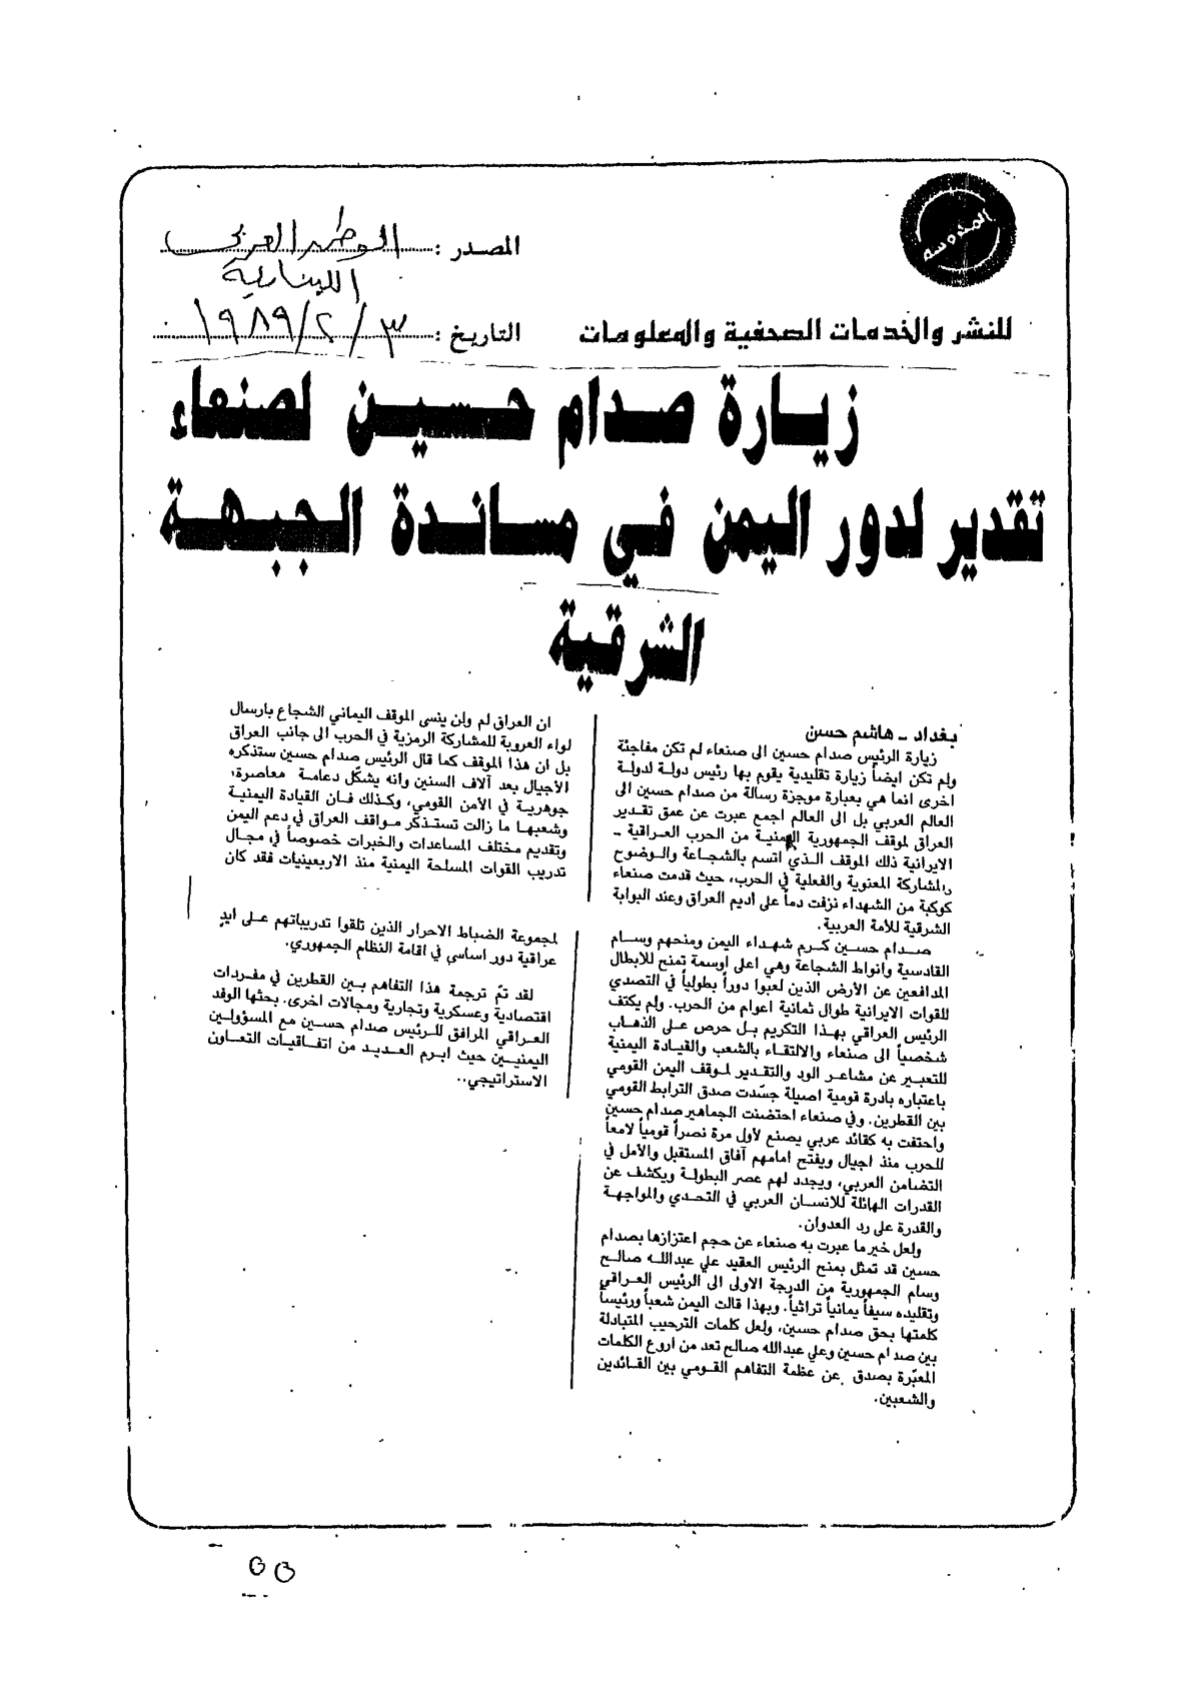 المصدر : الوطن العربي
اللبنانية
للنشر والخدمات الصحفية والمعلومات
التاريخ : ٣ / ٢ / ١٩٨٩
زيارة صدام حسين لصنعاء
تقدير لدور اليمن في مساندة الجبهة
الشرقية
بغداد - هاشم حسن
زيارة الرئيس صدام حسين الى صنعاء لم تكن مفاجئة
ولم تكن ايضاً زيارة تقليدية يقوم بها رئيس دولة لدولة
اخرى انما هي بعبارة موجزة رسالة من صدام حسين الى
العالم العربي بل الى العالم اجمع عبرت عن عمق تقدير
العراق لموقف الجمهورية اليمنية من الحرب العراقية -
الايرانية ذلك الموقف الذي اتسم بالشجاعة والوضوح
والمشاركة المعنوية والفعلية في الحرب، حيث قدمت صنعاء
كوكبة من الشهداء نزفت دماً على أديم العراق وعند البوابة
الشرقية للأمة العربية.
صدام حسين كرم شهداء اليمن ومنحهم وسام
القادسية وانواط الشجاعة وهي اعلى اوسمة تمنح للابطال
المدافعين عن الأرض الذين لعبوا دوراً بطولياً في التصدي
للقوات الايرانية طوال ثمانية اعوام من الحرب. ولم يكتف
الرئيس العراقي بهذا التكريم بل حرص على الذهاب
شخصياً الى صنعاء والالتقاء بالشعب والقيادة اليمنية
للتعبير عن مشاعر الود والتقدير لموقف اليمن القومي
باعتباره بادرة قومية اصيلة جسّدت صدق الترابط القومي
بين القطرين. وفي صنعاء احتضنت الجماهير صدام حسين
واحتفت به كقائد عربي يصنع لأول مرة نصراً قومياً لامعاً
للحرب منذ اجيال ويفتح امامهم آفاق المستقبل والأمل في
التضامن العربي، ويجدد لهم عصر البطولة ويكشف عن
القدرات الهائلة للانسان العربي في التحدي والمواجهة
والقدرة على رد العدوان.
ولعل خير ما عبرت به صنعاء عن حجم اعتزازها بصدام
حسين قد تمثل بمنح الرئيس العقيد علي عبدالله صالح
وسام الجمهورية من الدرجة الاولى الى الرئيس العراقي
وتقليده سيفاً يمانياً تراثياً. وبهذا قالت اليمن شعباً ورئيساً
كلمتها بحق صدام حسين، ولعل كلمات الترحيب المتبادلة
بين صدام حسين وعلي عبدالله صالح تعد من اروع الكلمات
المعبّرة بصدق عن عظمة التفاهم القومي بين القائدين
والشعبين.
ان العراق لم ولن ينسى الموقف اليماني الشجاع بارسال
لواء العروبة للمشاركة الرمزية في الحرب الى جانب العراق
بل ان هذا الموقف كما قال الرئيس صدام حسين ستذكره
الأجيال بعد آلاف السنين وانه يشكّل دعامة معاصرة،
جوهرية في الأمن القومي، وكذلك فان القيادة اليمنية
وشعبها ما زالت تستذكر مواقف العراق في دعم اليمن
وتقديم مختلف المساعدات والخبرات خصوصاً في مجال
تدريب القوات المسلحة اليمنية منذ الاربعينيات فقد كان
لمجموعة الضباط الاحرار الذين تلقوا تدريباتهم على ايدٍ
عراقية دور اساسي في اقامة النظام الجمهوري.
لقد تمّ ترجمة هذا التفاهم بين القطرين في مفردات
اقتصادية وعسكرية وتجارية ومجالات اخرى. بحثها الوفد
العراقي المرافق للرئيس صدام حسين مع المسؤولين
اليمنيين حيث ابرم العديد من اتفاقيات التعاون
الاستراتيجي..